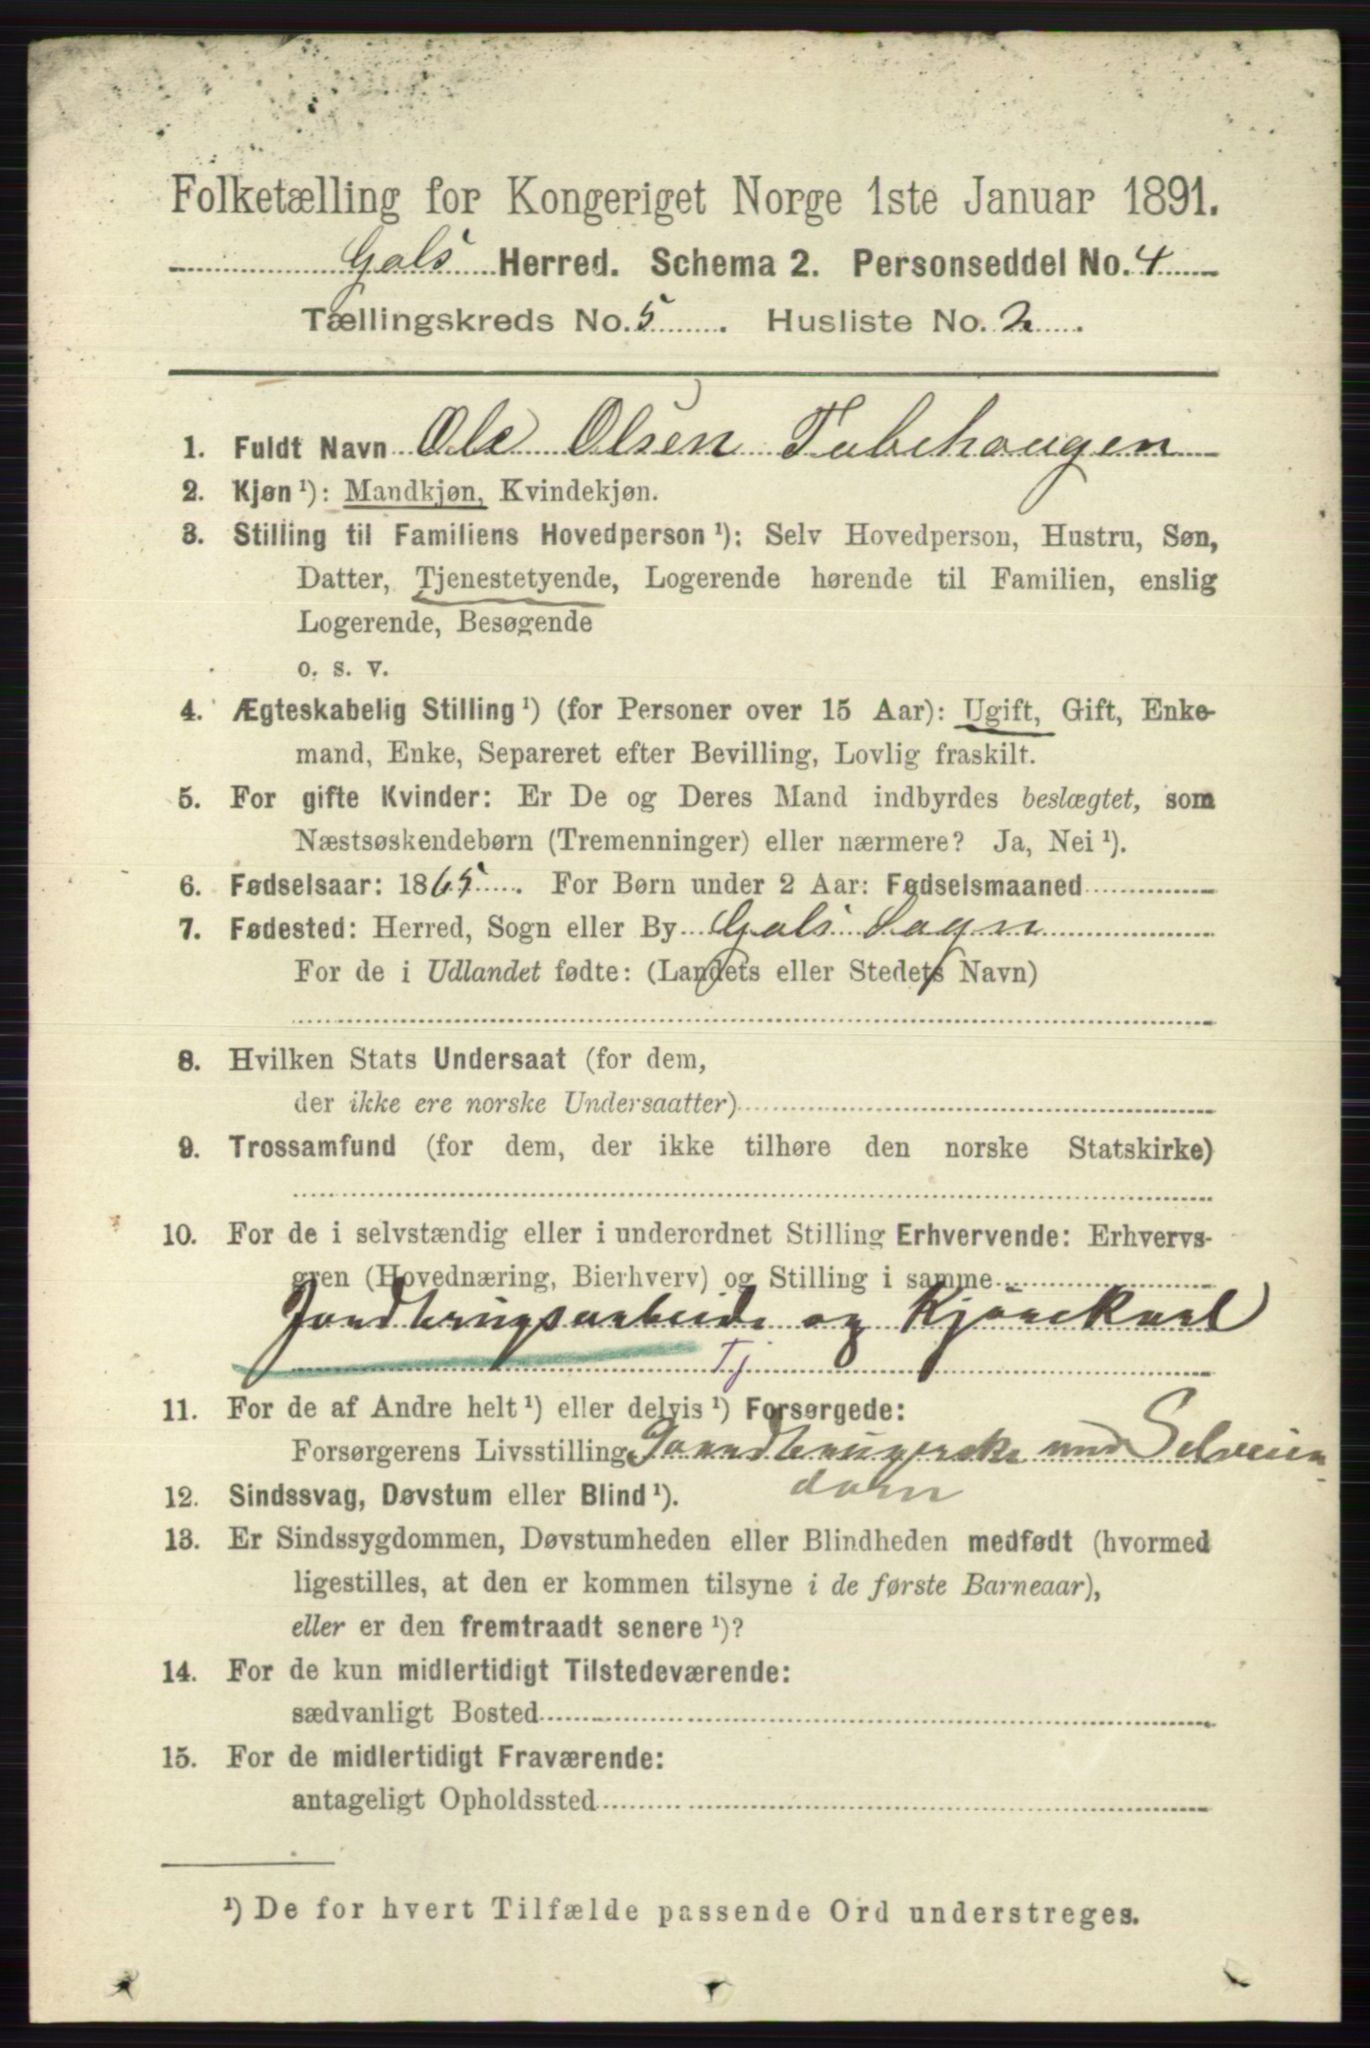 Folketælling for Kongeriget Norge 1ste Januar 1891.
Gols Herred. Schema 2. Personseddel No. 4
Tællingskreds No. 5. Husliste No. 2.
1. Fuldt Navn Ole Olsen Tubehaugen
2. Kjøn ¹): Mandkjøn, Kvindekjøn.
3. Stilling til Familiens Hovedperson ¹): Selv Hovedperson, Hustru, Søn,
Datter, Tjenestetyende, Logerende hørende til Familien, enslig
Logerende, Besøgende
o. s. v.
4. Ægteskabelig Stilling ¹) (for Personer over 15 Aar): Ugift, Gift, Enke-
mand, Enke, Separeret efter Bevilling, Lovlig fraskilt.
5. For gifte Kvinder: Er De og Deres Mand indbyrdes beslægtet, som
Næstsøskendebørn (Tremenninger) eller nærmere? Ja, Nei ¹).
6. Fødselsaar: 1865. For Børn under 2 Aar: Fødselsmaaned
7. Fødested: Herred, Sogn eller By Gols Sogn
For de i Udlandet fødte: (Landets eller Stedets Navn)
8. Hvilken Stats Undersaat (for dem,
der ikke ere norske Undersaatter)
9. Trossamfund (for dem, der ikke tilhøre den norske Statskirke)
10. For de i selvstændig eller i underordnet Stilling Erhvervende: Erhvervs-
gren (Hovednæring, Bierhverv) og Stilling i samme
Jordbrugsarbeide og Kjørekarl
Tj
11. For de af Andre helt ¹) eller delvis ¹) Forsørgede:
Forsørgerens Livsstilling Gaardbrugerske med Selveien
dom
12. Sindssvag, Døvstum eller Blind ¹).
13. Er Sindssygdommen, Døvstumheden eller Blindheden medfødt (hvormed
ligestilles, at den er kommen tilsyne i de første Barneaar),
eller er den fremtraadt senere ¹)?
14. For de kun midlertidigt Tilstedeværende:
sædvanligt Bosted
15. For de midlertidigt Fraværende:
antageligt Opholdssted
¹) De for hvert Tilfælde passende Ord understreges.